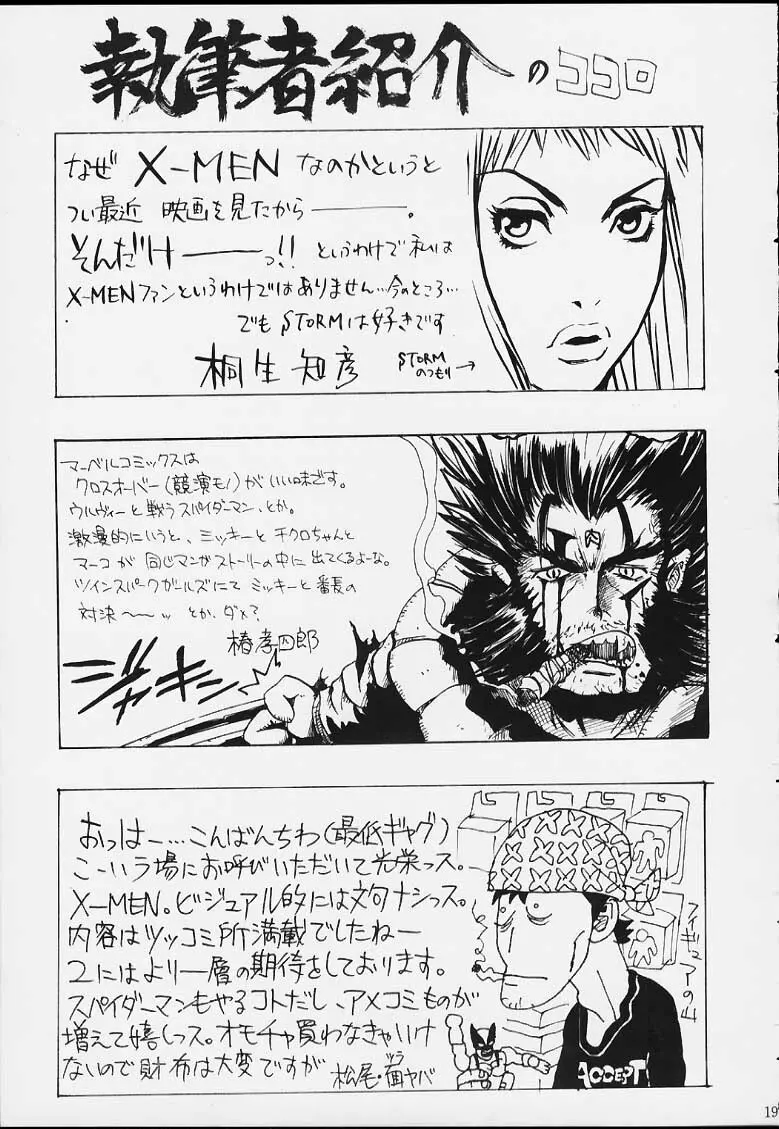 執筆者紹介のココロ
なぜ X-MEN なのかというと
つい最近 映画を見たから―――。
そんだけ―――っ!! というわけで私は
X-MENファンというわけではありません…今のところ…
でも STORMは好きです
桐生知彦
STORM
のつもり→
マーベルコミックスは
クロスオーバー(競演モノ)がいい味です。
ウルヴィーと戦うスパイダーマン、とか。
激漫的にいうと、ミッキーとチクロちゃんと
マーコが同じマンガストーリーの中に出てくるよーな。
ツインスパークガールズにてミッキーと番長の
対決〜〜ッ とか、ダメ?
椿孝四郎
ジャキン
肉
おっはー…こんばんちわ(最低ギャグ)
こーいう場にお呼びいただいて光栄っス。
X-MEN。ビジュアル的には文句ナシっス。
内容はツッコミ所満載でしたねー
2にはより一層の期待をしております。
スパイダーマンもやるコトだし、アメコミものが
増えて嬉しっス。オモチャ買わなきゃいけ
ないので財布は大変ですが
松尾・面ヤバ
ヅラ
フィギュアの山
ACCEPT
19